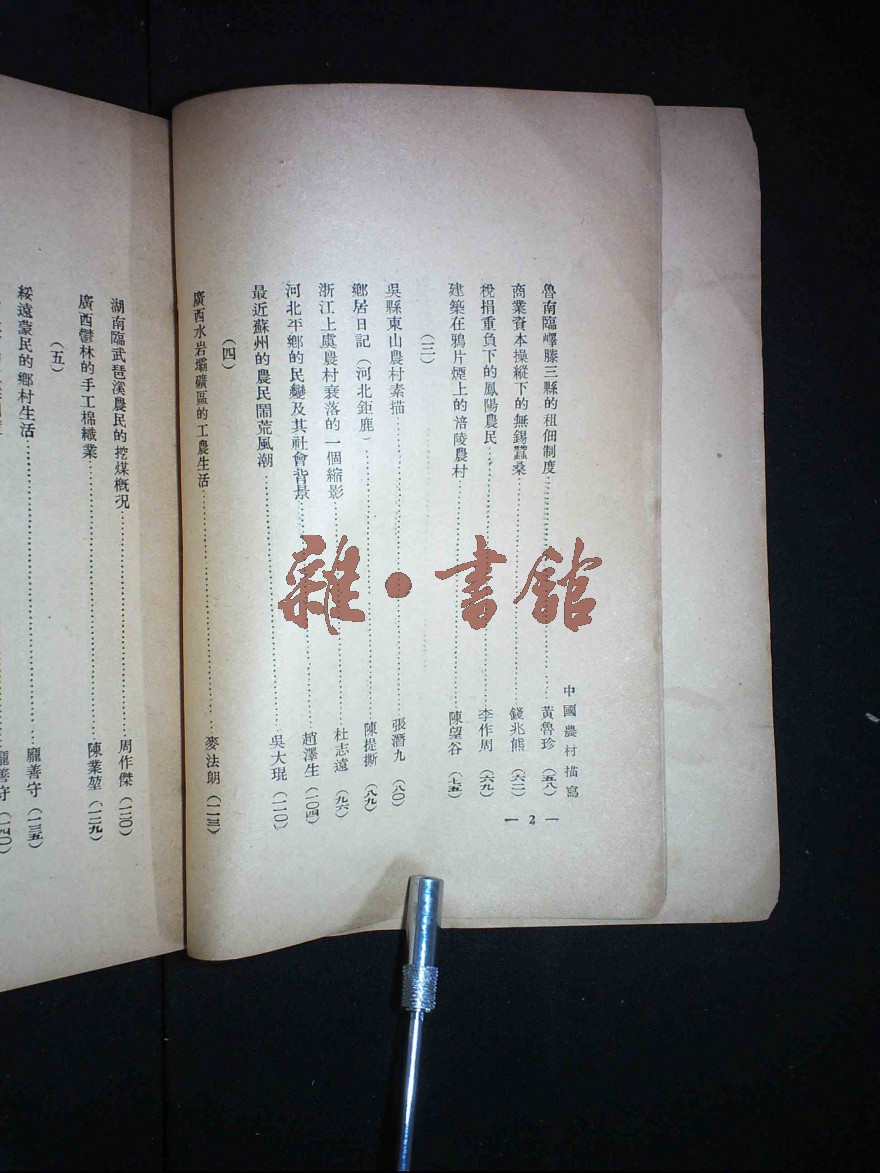 中國農村描寫
— 2 —
魯南臨嶧滕三縣的租佃制度……黃魯珍（五八）
商業資本操縱下的無錫蠶桑……錢兆熊（六二）
稅捐重負下的鳳陽農民……李作周（六九）
建築在鴉片煙上的涪陵農村……陳望谷（七五）
（三）
吳縣東山農村素描……張潛九（八〇）
鄉居日記（河北鉅鹿）……陳提撕（八九）
浙江上虞農村衰落的一個縮影……杜志遠（九六）
河北平鄉的民變及其社會背景……趙澤生（一〇四）
最近蘇州的農民鬧荒風潮……吳大琨（一一〇）
（四）
廣西水岩壩礦區的工農生活……麥法朗（一一三）
湖南臨武琶溪農民的挖煤概況……周作傑（一二〇）
廣西鬱林的手工棉織業……陳業堃（一二九）
（五）
綏遠蒙民的鄉村生活……龐善守（一三五）
龐善守（一四〇）
雜·書館